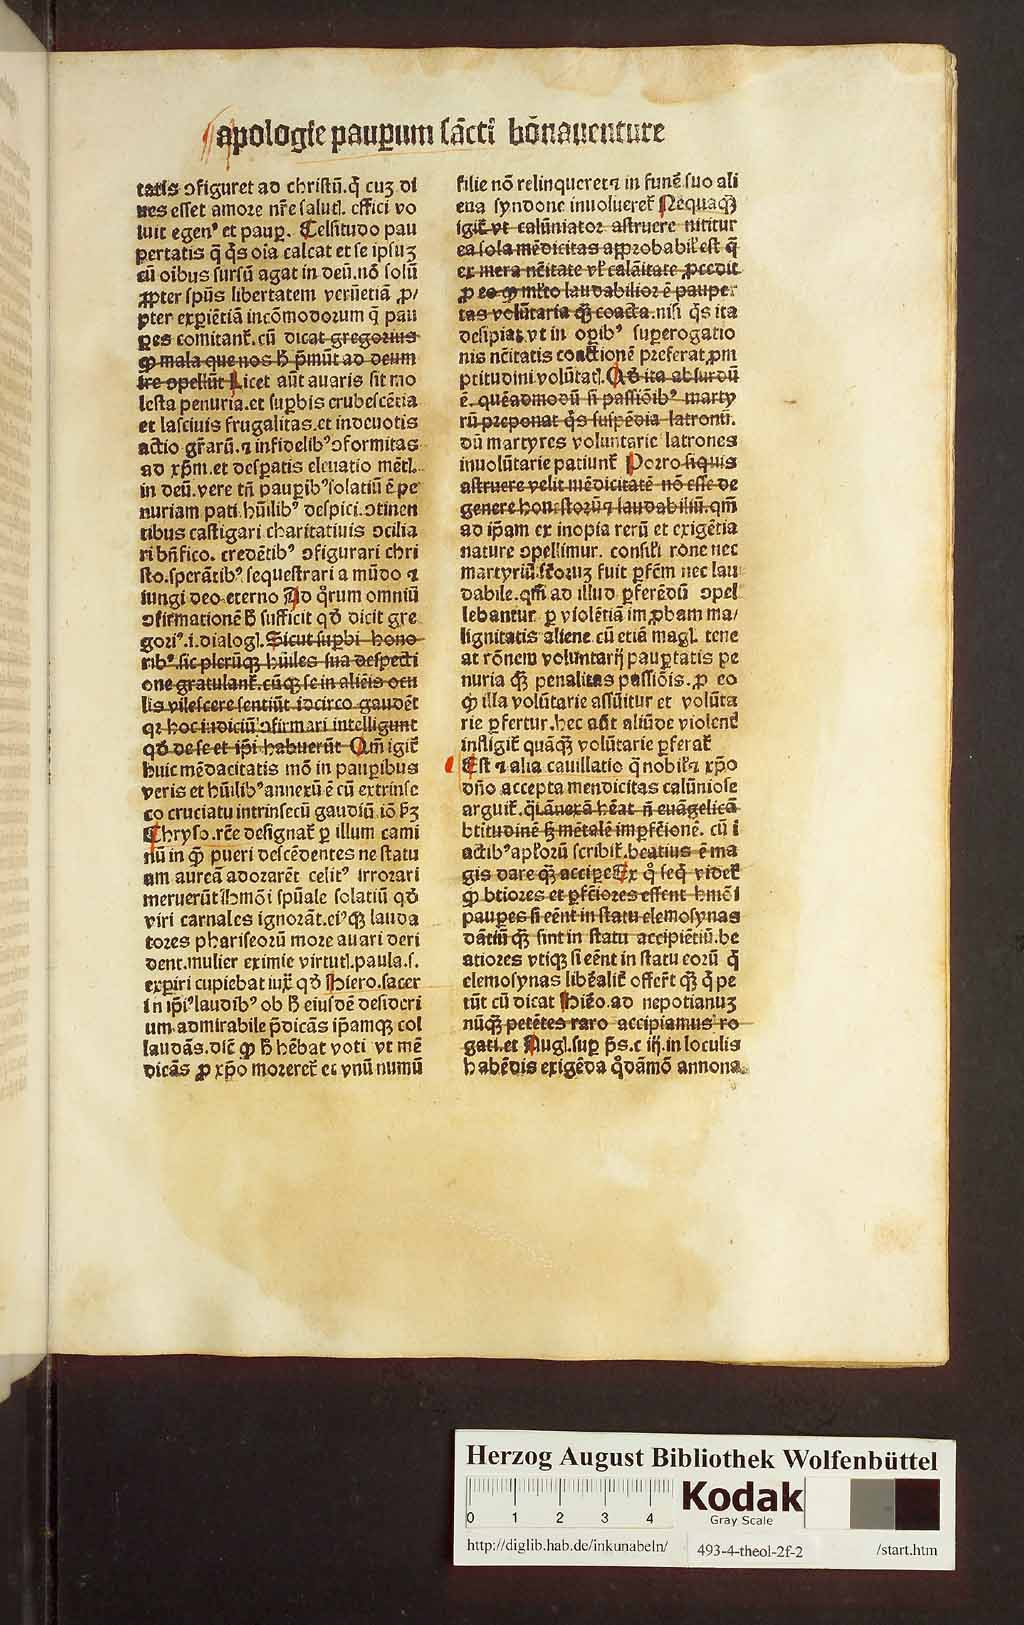 apologie pauꝑum sācti bōnauenture
tatis ɔfiguret ad christū. q̄ cuȝ di
ues esset amore nr̄e salutꝭ. effici vo
luit egenꝰ et paup. Celsitudo pau
pertatis q̄ q̄s oīa calcat et se ipsuȝ
cū oibus sursū agat in deū. nō solū
ꝓpter spūs libertatem verūetiā ꝓ/
pter expiētiā incōmodorum q̄ pau
ꝑes comitant̄. cū dicat gregorius
ꝙ mala que nos ħ p̄mūt ad deum
ire ɔpellūt Licet aūt avaris sit mo
lesta penuria. et suꝑbis erubescētia
et lasciuis frugalitas. et indeuotis
actio gr̄arū. ⁊ infidelibꝰ ɔformitas
ad xp̄m. et desꝑatis eleuatio mētꝭ.
in deū. vere tn̄ pauꝑibꝰ solatiū ē pe
nuriam pati. hūilibꝰ despici. ɔtinen
tibus castigari charitatiuis ɔcilia
ri bn̄fico. credētibꝰ ɔfigurari chri
sto. sperātibꝰ sequestrari a mūdo ⁊
iungi deo eterno Ad q̊rum omniū
ɔfirmationē ħ sufficit qđ dicit gre
goriꝰ. i. dialogꝭ. Sicut suꝑbi hono
ribꝰ. sic plerūqꝫ hūiles sua despecti
one gratulant̄. cūqꝫ se in alieīs ocu
lis vilescere sentiūt idcirco gaudēt
qꝛ hoc iudiciū ɔfirmari intelligunt
qđ de se et ip̄i habuerūt Qm̄ igit̄
huic mēdacitatis mō in pauꝑibus
veris et hūilibꝰ annexū ē cū extrinse
co cruciatu intrinsecū gaudiū. iō bȝ
Chryso. rc̄e designat̄ ꝑ illum cami
nū in q̄ pueri descēdentes ne statu
am aureā adorarēt celitꝰ irrorari
meruerūt ihmōi spūale solatiū qđ
viri carnales ignorāt. eiꝰqꝫ lauda
tores phariseorū more auari deri
dent. mulier eximie virtutꝭ. paula. s.
exꝑiri cupiebat iux̄ qđ Hiero. sacer
in ip̄iꝰ laudibꝰ ob ħ eiusdē desideri
um admirabile p̄dicās ip̄amqꝫ col
laudās. dic̄ ꝙ ħ hēbat voti vt mē
dicās ꝓ xp̄o moreret̄ ec vnū numū
filie nō relinqueret ⁊ in funē suo ali
ena syndone inuolueret̄ Nequaqꝫ
igit̄ vt calūniator astruere nititur
ea sola mēdicitas approbabił est q̄
ex mera ncītate vł calāitate ꝓcedit
ꝓ eo ꝙ mr̄to laudabilior ē pauper
tas volūtaria qꝫ coacta. nisi q̄s ita
desipiat vt in oꝑibꝰ superogatio
nis ncītatis coactionē preferat ꝓm
ptitudini volūtatꝭ. Qđ ita absurdū
ē. quēadmodū si passiōibꝰ marty
rū preponat q̄s suspēdia latronū.
dū martyres voluntarie latrones
inuolūtarie patiunt̄ Porro siquis
astruere velit mēdicitatē nō esse de
genere honestorū ⁊ laudabiliū. qm̄
ad ip̄am ex inopia rerū et exigētia
nature ɔpellimur. consiłi rōne nec
martyriū sc̄toruȝ fuit ꝑfc̄m nec lau
dabile. qm̄ ad illud ꝑferēdū ɔpel
lebantur ꝑ violētiā imꝓbam ma/
lignitatis aliene cū etiā magꝭ tene
at rōnem voluntarij pauꝑtatis pe
nuria qꝫ penalitas passiōis. ꝓ eo
ꝙ illa volūtarie assūitur et volūta
rie ꝑfertur. hec aūt aliūde violent̄
infligit̄ quāqꝫ volūtarie ꝑferat̄
Est ⁊ alia cauillatio q̄ nobił ⁊ xp̄o
dn̄o accepta mendicitas calūniose
arguit̄. q̄ ānexā hēat n̄ euāgelicā
btitudinē sȝ mētalē imꝑfc̄ionē. cū i
actibꝰ apłorū scribit̄. beatius ē ma
gis dare qꝫ accipe Ex q̊ seq̄ videt̄
ꝙ btiores et ꝑfc̄iores essent hmōi
pauꝑes si eēnt in statu elemosynas
dātiū qꝫ sint in statu accipiētiū. be
atiores vtiqꝫ si eēnt in statu eorū q̄
elemosynas libēalit̄ offer̄t qꝫ q̄ pe
tūt cū dicat Hiēo. ad nepotianuȝ
nūqꝫ petētes raro accipiamusꝰ ro
gati. et Augꝭ. suꝑ p̄s. c iij. in loculis
habēdis exigēda q̊dāmō annona.
Herzog August Bibliothek Wolfenbüttel
0 1 2 3 4
Kodak
Gray Scale
http://diglib.hab.de/inkunabeln/ 493-4-theol-2f-2 /start.htm